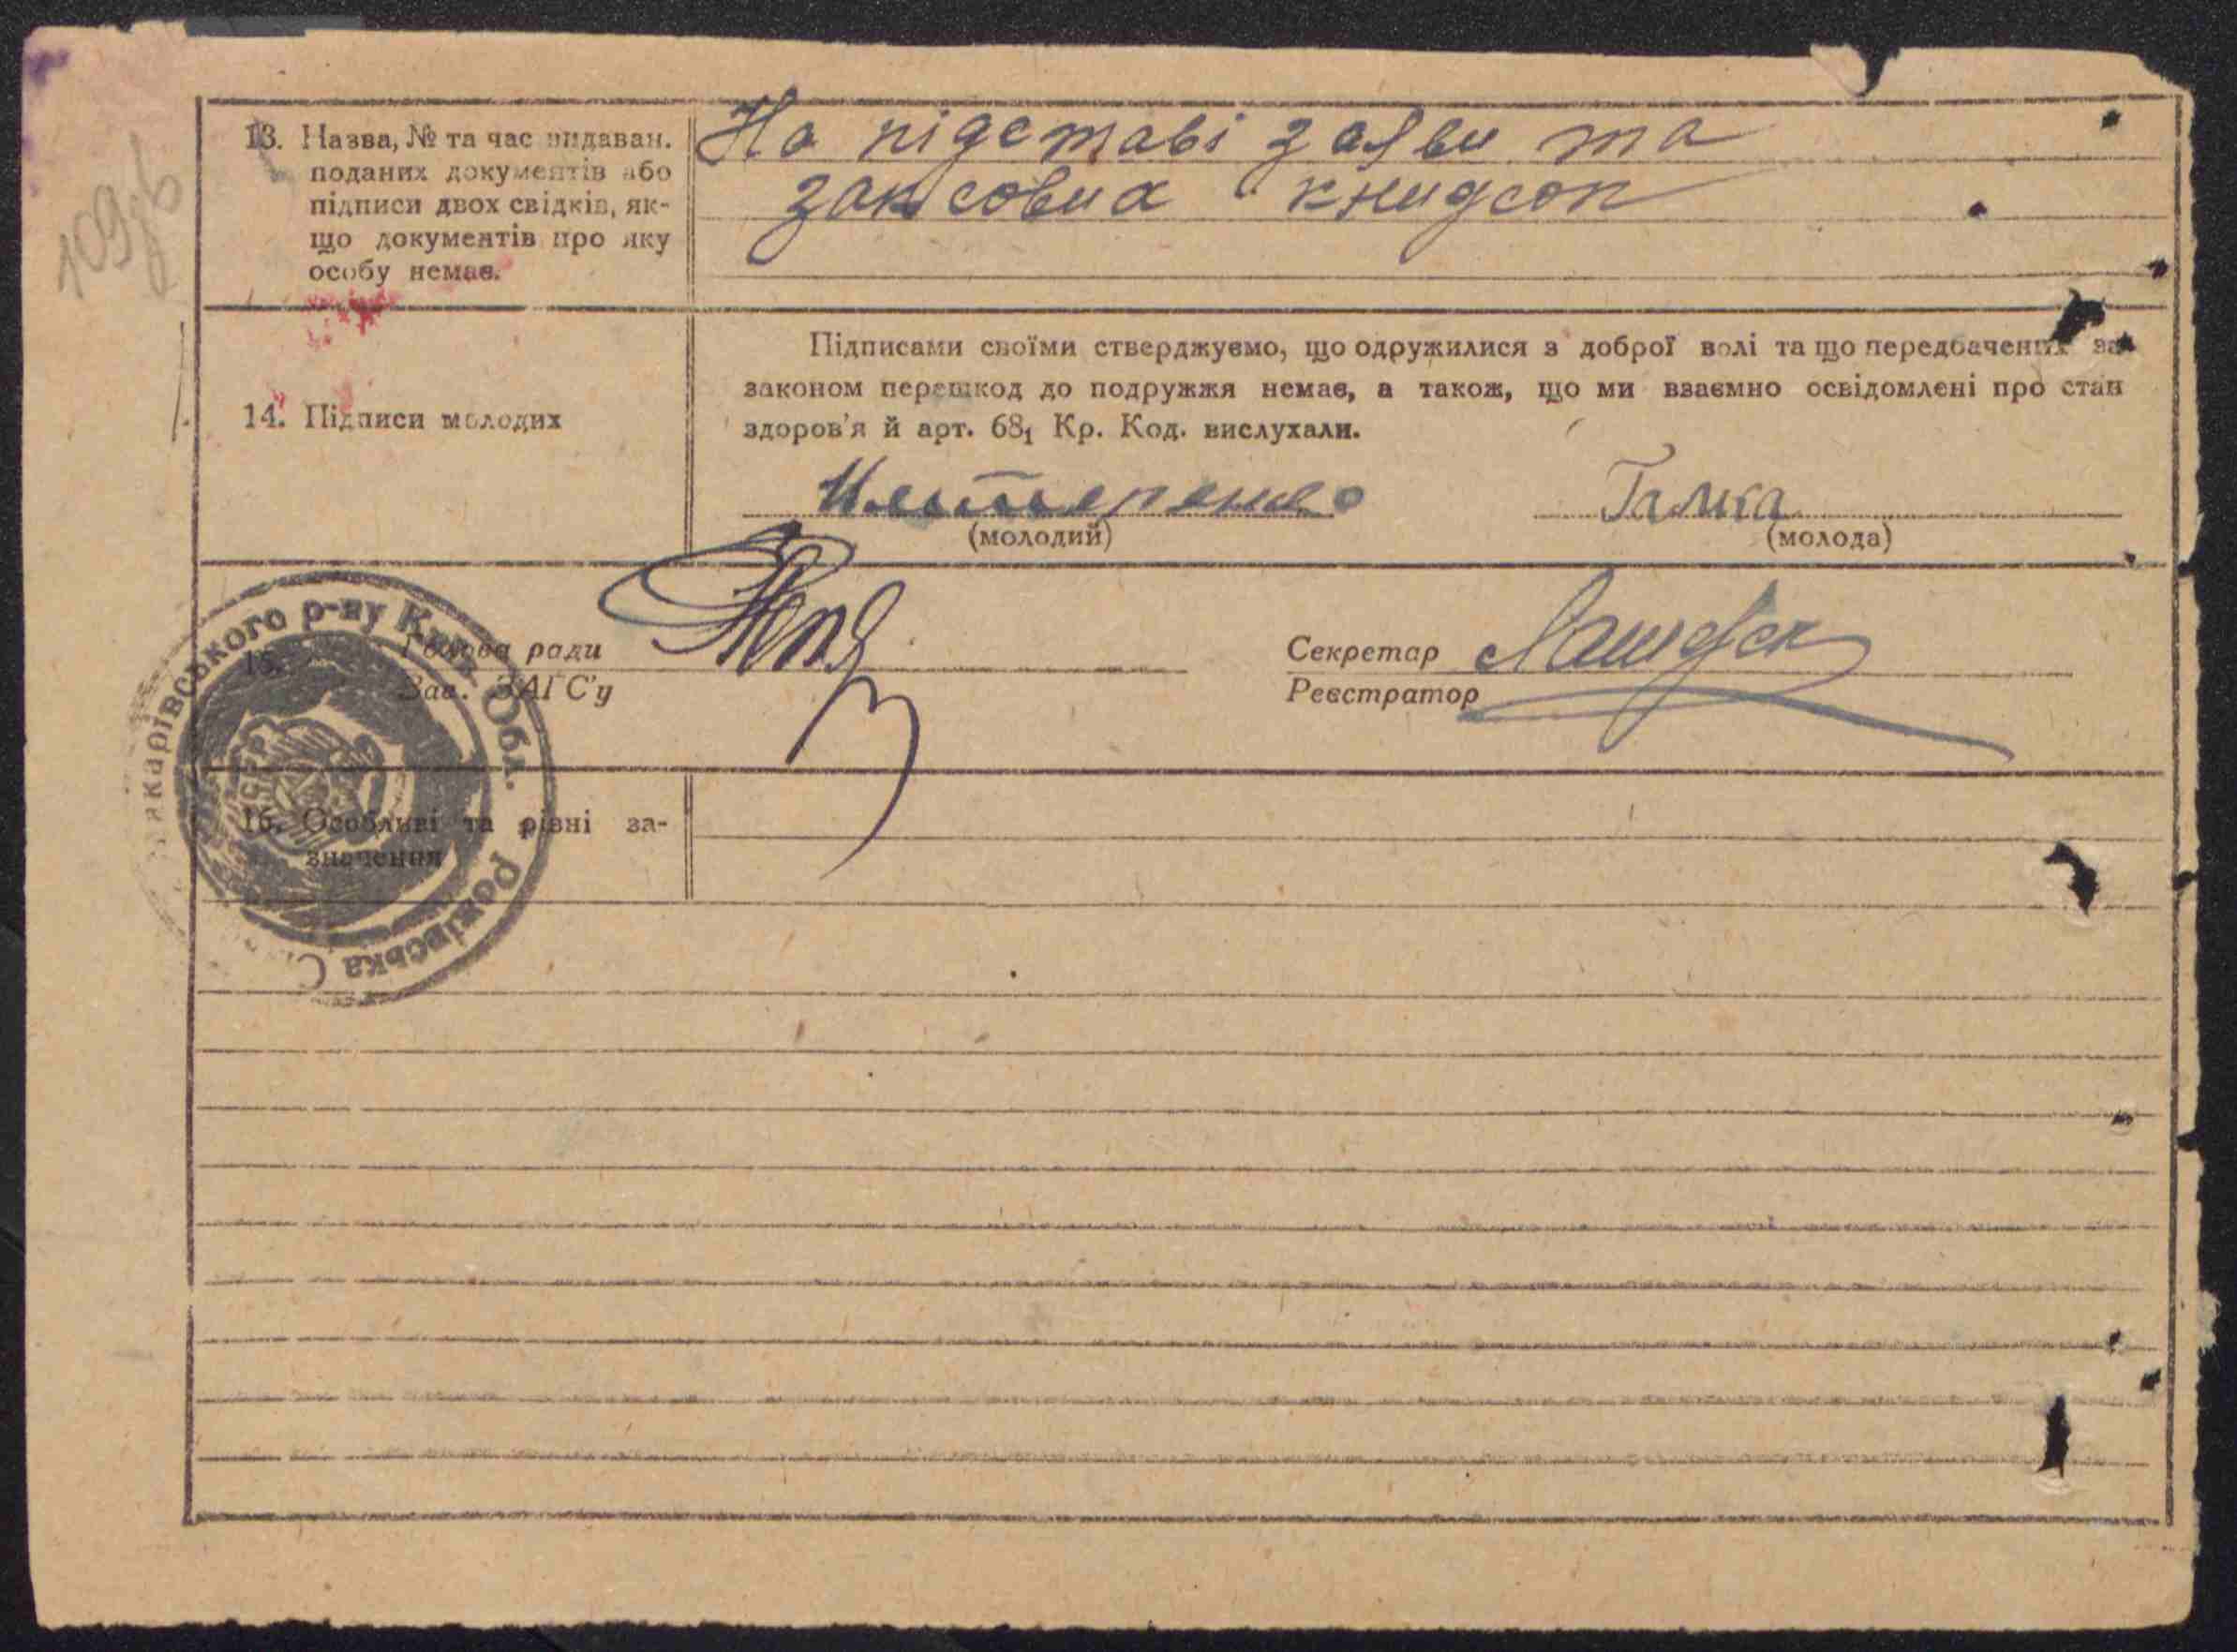 109зв
13. Назва, № та час видаван.
поданих документів або
підписи двох свідків, як-
що документів про яку
особу немає.
На підставі заяви та
заксових книджок
14. Підписи молодих
Підписами своїми стверджуємо, що одружилися з доброї волі та що передбачених за
законом перешкод до подружжя немає, а також, що ми взаємно освідомлені про стан
здоров'я й арт. 68₁ Кр. Код. вислухали.
Галка
(молодий)
(молода)
15. Голова ради
Зав. ЗАГС'у
Секретар
Реєстратор
16. Особливі та різні за-
значення
Макарівського р-ну Київ. Обл.
Рожівська С